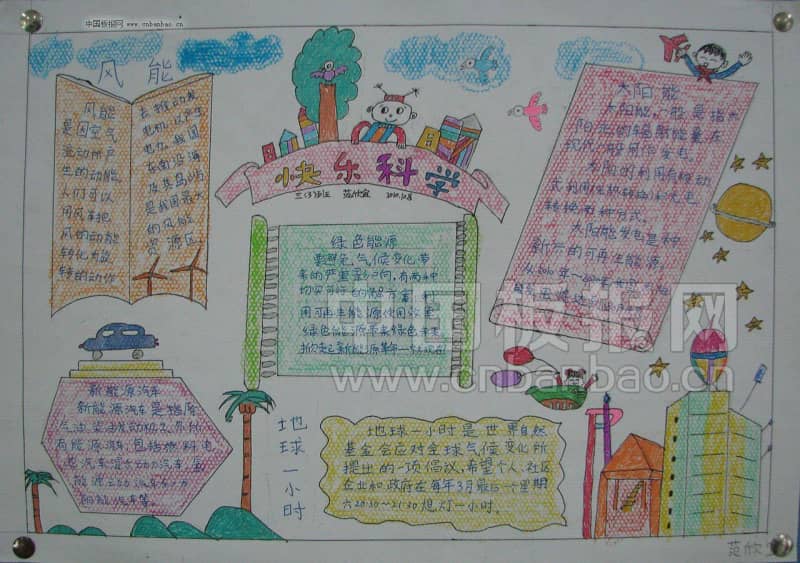 中国板报网
www.cnbanbao.cn
风能
风能
是因空气
流动所产
生的动能
人们可以
用风车把
风的动能
转化为旋
转的动作
去推动发
电机，以产生
电力。我国
东南沿海
及其岛屿
是我国最大
的风能
资源区
快乐科学
三(3)班 范欣宜
绿色能源
气候变化带
来的严重影响，有两种
切实可行的解决方案：利
用可再生能源
绿色能源带来绿色未来
掀起新能源革命
太阳能
太阳能，一般是指太
阳光的辐射能量在
现代一般用作发电。
太阳的利用有被动
式利用(光热转换)和光电
转换两种方式。
太阳能发电是一种
新兴的可再生能源
新能源汽车
新能源汽车是指除
汽油、柴油发动机之外所
有能源汽车。包括燃料电
池汽车、混合动力汽车、氢
能源动力汽车和太
阳能汽车等。
地球一小时
地球一小时是世界自然
基金会应对全球气候变化所
提出的一项倡议，希望个人、社区
企业和政府在每年3月最后一个星期
六20:30—21:30熄灯一小时。
中国板报网
www.cnbanbao.cn
范欣宜